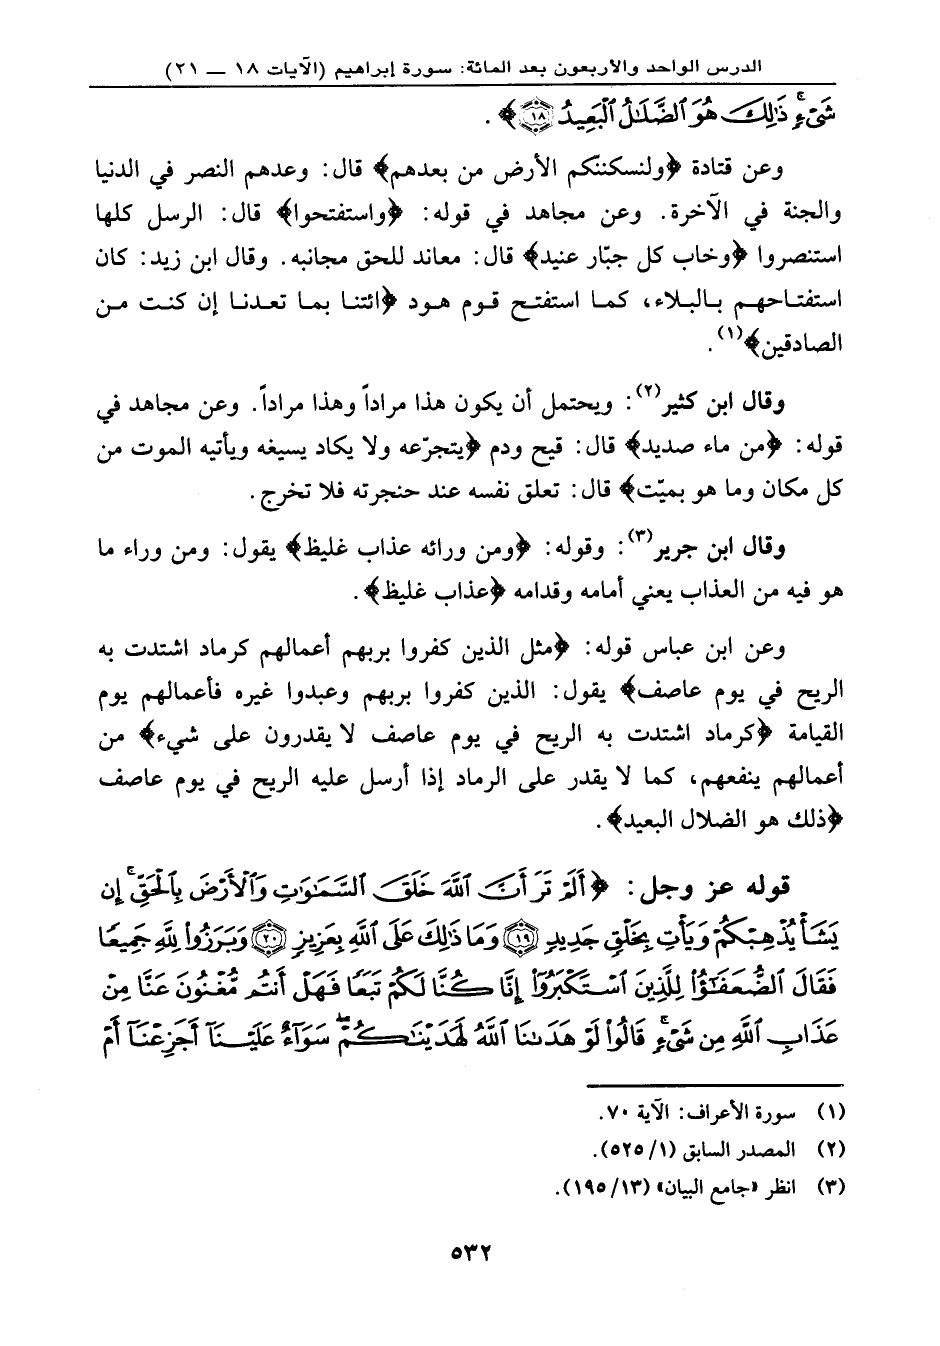 الدرس الواحد والأربعون بعد المائة: سورة إبراهيم (الآيات ١٨ ــ ٢١)
شَيْءٍ ذَٰلِكَ هُوَ ٱلضَّلَٰلُ ٱلْبَعِيدُ ﴿١٨﴾﴾ .
وعن قتادة ﴿ولنسكننّكم الأرض من بعدهم﴾ قال: وعدهم النصر في الدنيا
والجنة في الآخرة. وعن مجاهد في قوله: ﴿واستفتحوا﴾ قال: الرسل كلها
استنصروا ﴿وخاب كل جبّار عنيد﴾ قال: معاند للحق مجانبه. وقال ابن زيد: كان
استفتاحهم بالبلاء، كما استفتح قوم هود ﴿ائتنا بما تعدنا إن كنت من
الصادقين﴾(١).
وقال ابن كثير(٢): ويحتمل أن يكون هذا مراداً وهذا مراداً. وعن مجاهد في
قوله: ﴿من ماء صديد﴾ قال: قيح ودم ﴿يتجرّعه ولا يكاد يسيغه ويأتيه الموت من
كل مكان وما هو بميّت﴾ قال: تعلق نفسه عند حنجرته فلا تخرج.
وقال ابن جرير(٣): وقوله: ﴿ومن ورائه عذاب غليظ﴾ يقول: ومن وراء ما
هو فيه من العذاب يعني أمامه وقدامه ﴿عذاب غليظ﴾.
وعن ابن عباس قوله: ﴿مثل الذين كفروا بربهم أعمالهم كرماد اشتدت به
الريح في يوم عاصف﴾ يقول: الذين كفروا بربهم وعبدوا غيره فأعمالهم يوم
القيامة ﴿كرماد اشتدت به الريح في يوم عاصف لا يقدرون على شيء﴾ من
أعمالهم ينفعهم، كما لا يقدر على الرماد إذا أرسل عليه الريح في يوم عاصف
﴿ذلك هو الضلال البعيد﴾.
قوله عز وجل: ﴿أَلَمْ تَرَ أَنَّ ٱللَّهَ خَلَقَ ٱلسَّمَٰوَٰتِ وَٱلْأَرْضَ بِٱلْحَقِّ ۚ إِن
يَشَأْ يُذْهِبْكُمْ وَيَأْتِ بِخَلْقٍ جَدِيدٍ ﴿١٩﴾ وَمَا ذَٰلِكَ عَلَى ٱللَّهِ بِعَزِيزٍ ﴿٢٠﴾ وَبَرَزُوا۟ لِلَّهِ جَمِيعًا
فَقَالَ ٱلضُّعَفَٰٓؤُا۟ لِلَّذِينَ ٱسْتَكْبَرُوٓا۟ إِنَّا كُنَّا لَكُمْ تَبَعًا فَهَلْ أَنتُم مُّغْنُونَ عَنَّا مِنْ
عَذَابِ ٱللَّهِ مِن شَىْءٍ ۚ قَالُوا۟ لَوْ هَدَىٰنَا ٱللَّهُ لَهَدَيْنَٰكُمْ ۖ سَوَآءٌ عَلَيْنَآ أَجَزِعْنَآ أَمْ
(١) سورة الأعراف: الآية ٧٠.
(٢) المصدر السابق (١/ ٥٢٥).
(٣) انظر «جامع البيان» (١٣/ ١٩٥).
٥٣٢